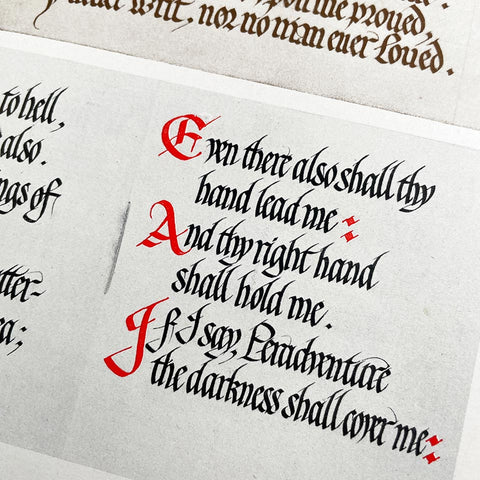 me proved,
writ, nor no man ever loved.
to hell,
also.
ngs of
tter-
ea;
Even there also shall thy
hand lead me:
And thy right hand
shall hold me.
If I say, Peradventure
the darkness shall cover me: